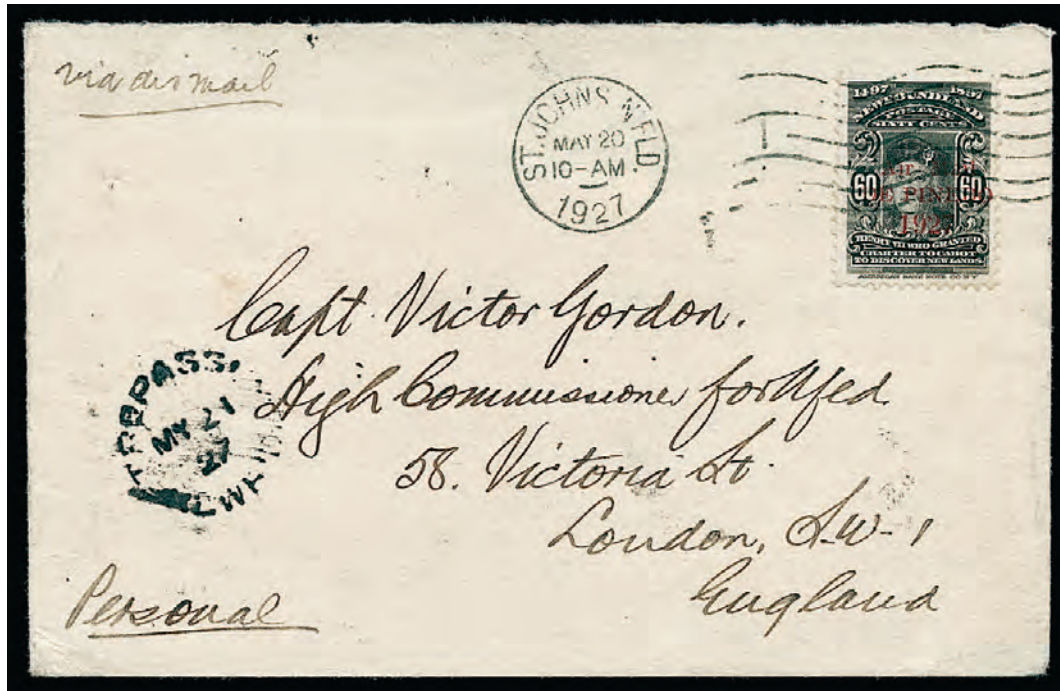 via air mail
ST. JOHNS NFLD.
MAY 20
10-AM
1927
1497 1897
NEWFOUNDLAND
POSTAGE
SIXTY CENTS
60 60
DE PINEDO
192
HENRY VII WHO GRANTED
CHARTER TO CABOT
TO DISCOVER NEW LANDS.
AMERICAN BANK NOTE CO. N.Y.
Capt. Victor Gordon.
High Commissioner for Nfld
58. Victoria St.
London, S.W-1
England
REPASS
MY 21
27
NEWF
Personal